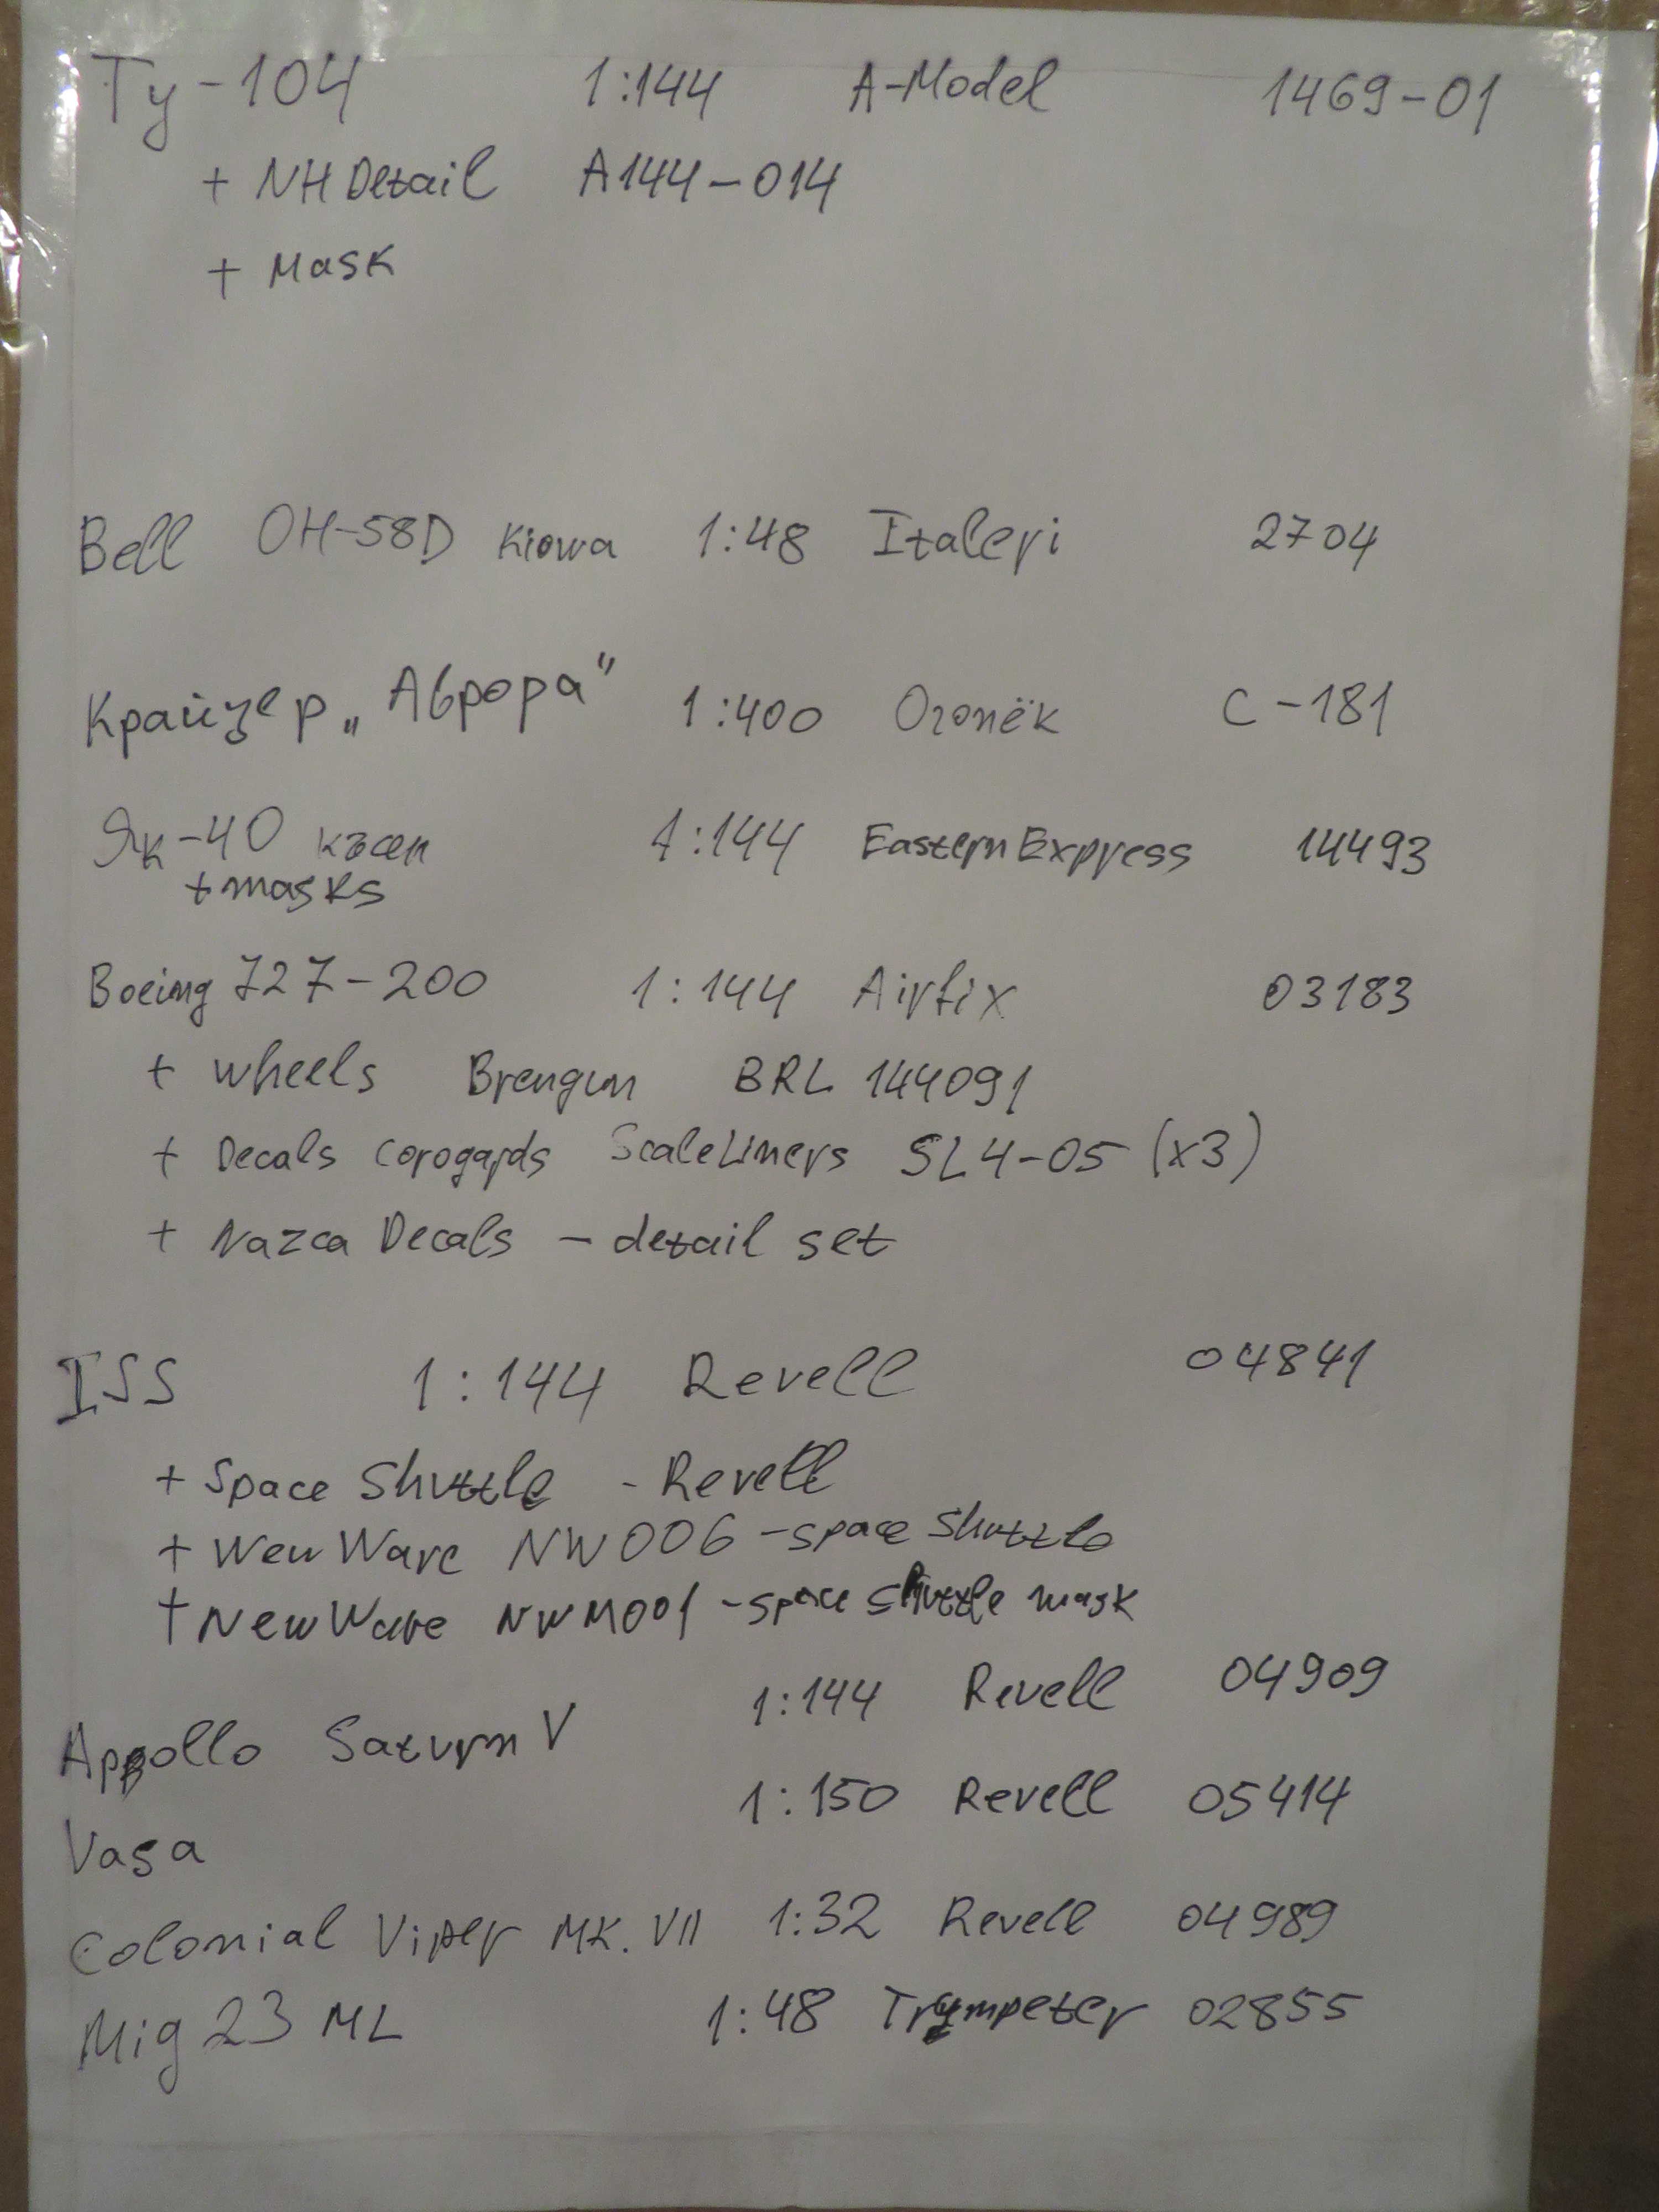 Ту-104 1:144 A-Model 1469-01
+ NH Detail A144-014
+ Mask
Bell OH-58D Kiowa 1:48 Italeri 2704
Крайцер „Аврора“ 1:400 Огонёк С-181
Як-40 късен 1:144 Eastern Express 14493
+ masks
Boeing 727-200 1:144 Airfix 03183
+ wheels Brengun BRL 144091
+ Decals corogards ScaleLiners SL4-05 (x3)
+ Nazca Decals - detail set
ISS 1:144 Revell 04841
+ Space Shuttle - Revell
+ Wew Ware NW006 - space shuttle
+ New Ware NWM001 - space shuttle mask
Appollo Saturn V 1:144 Revell 04909
Vasa 1:150 Revell 05414
Colonial Viper MK. VII 1:32 Revell 04989
Mig 23 ML 1:48 Trympeter 02855